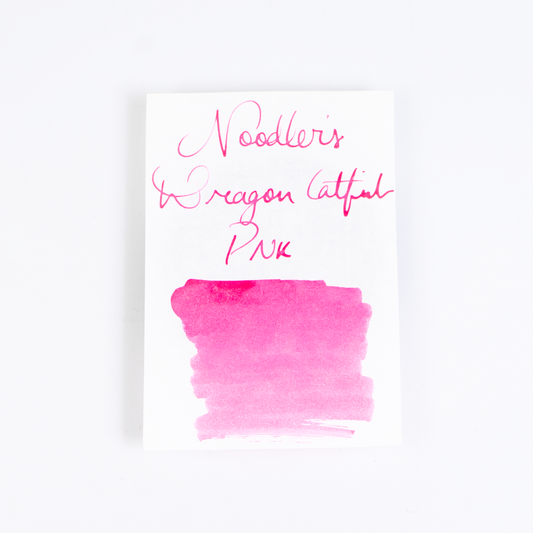 Noodler's
Dragon Catfish
Pink